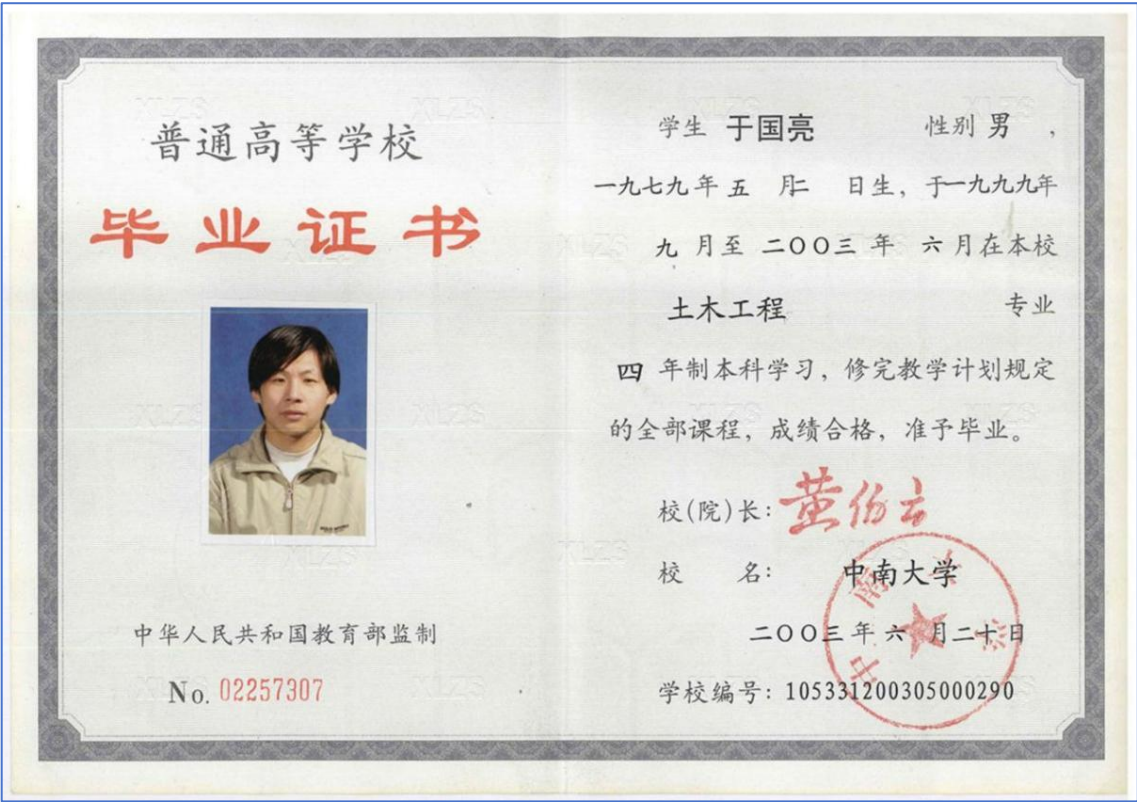 普通高等学校
毕业证书
中华人民共和国教育部监制
No. 02257307
学生 于国亮 性别 男 ,
一九七九年五 月二 日生，于一九九九年
九 月至 二〇〇三 年 六月在本校
土木工程 专业
四 年制本科学习，修完教学计划规定
的全部课程，成绩合格，准予毕业。
校(院)长: 黄伯云
校 名: 中南大学
二〇〇三年六 月二十日
学校编号: 105331200305000290
中南大学